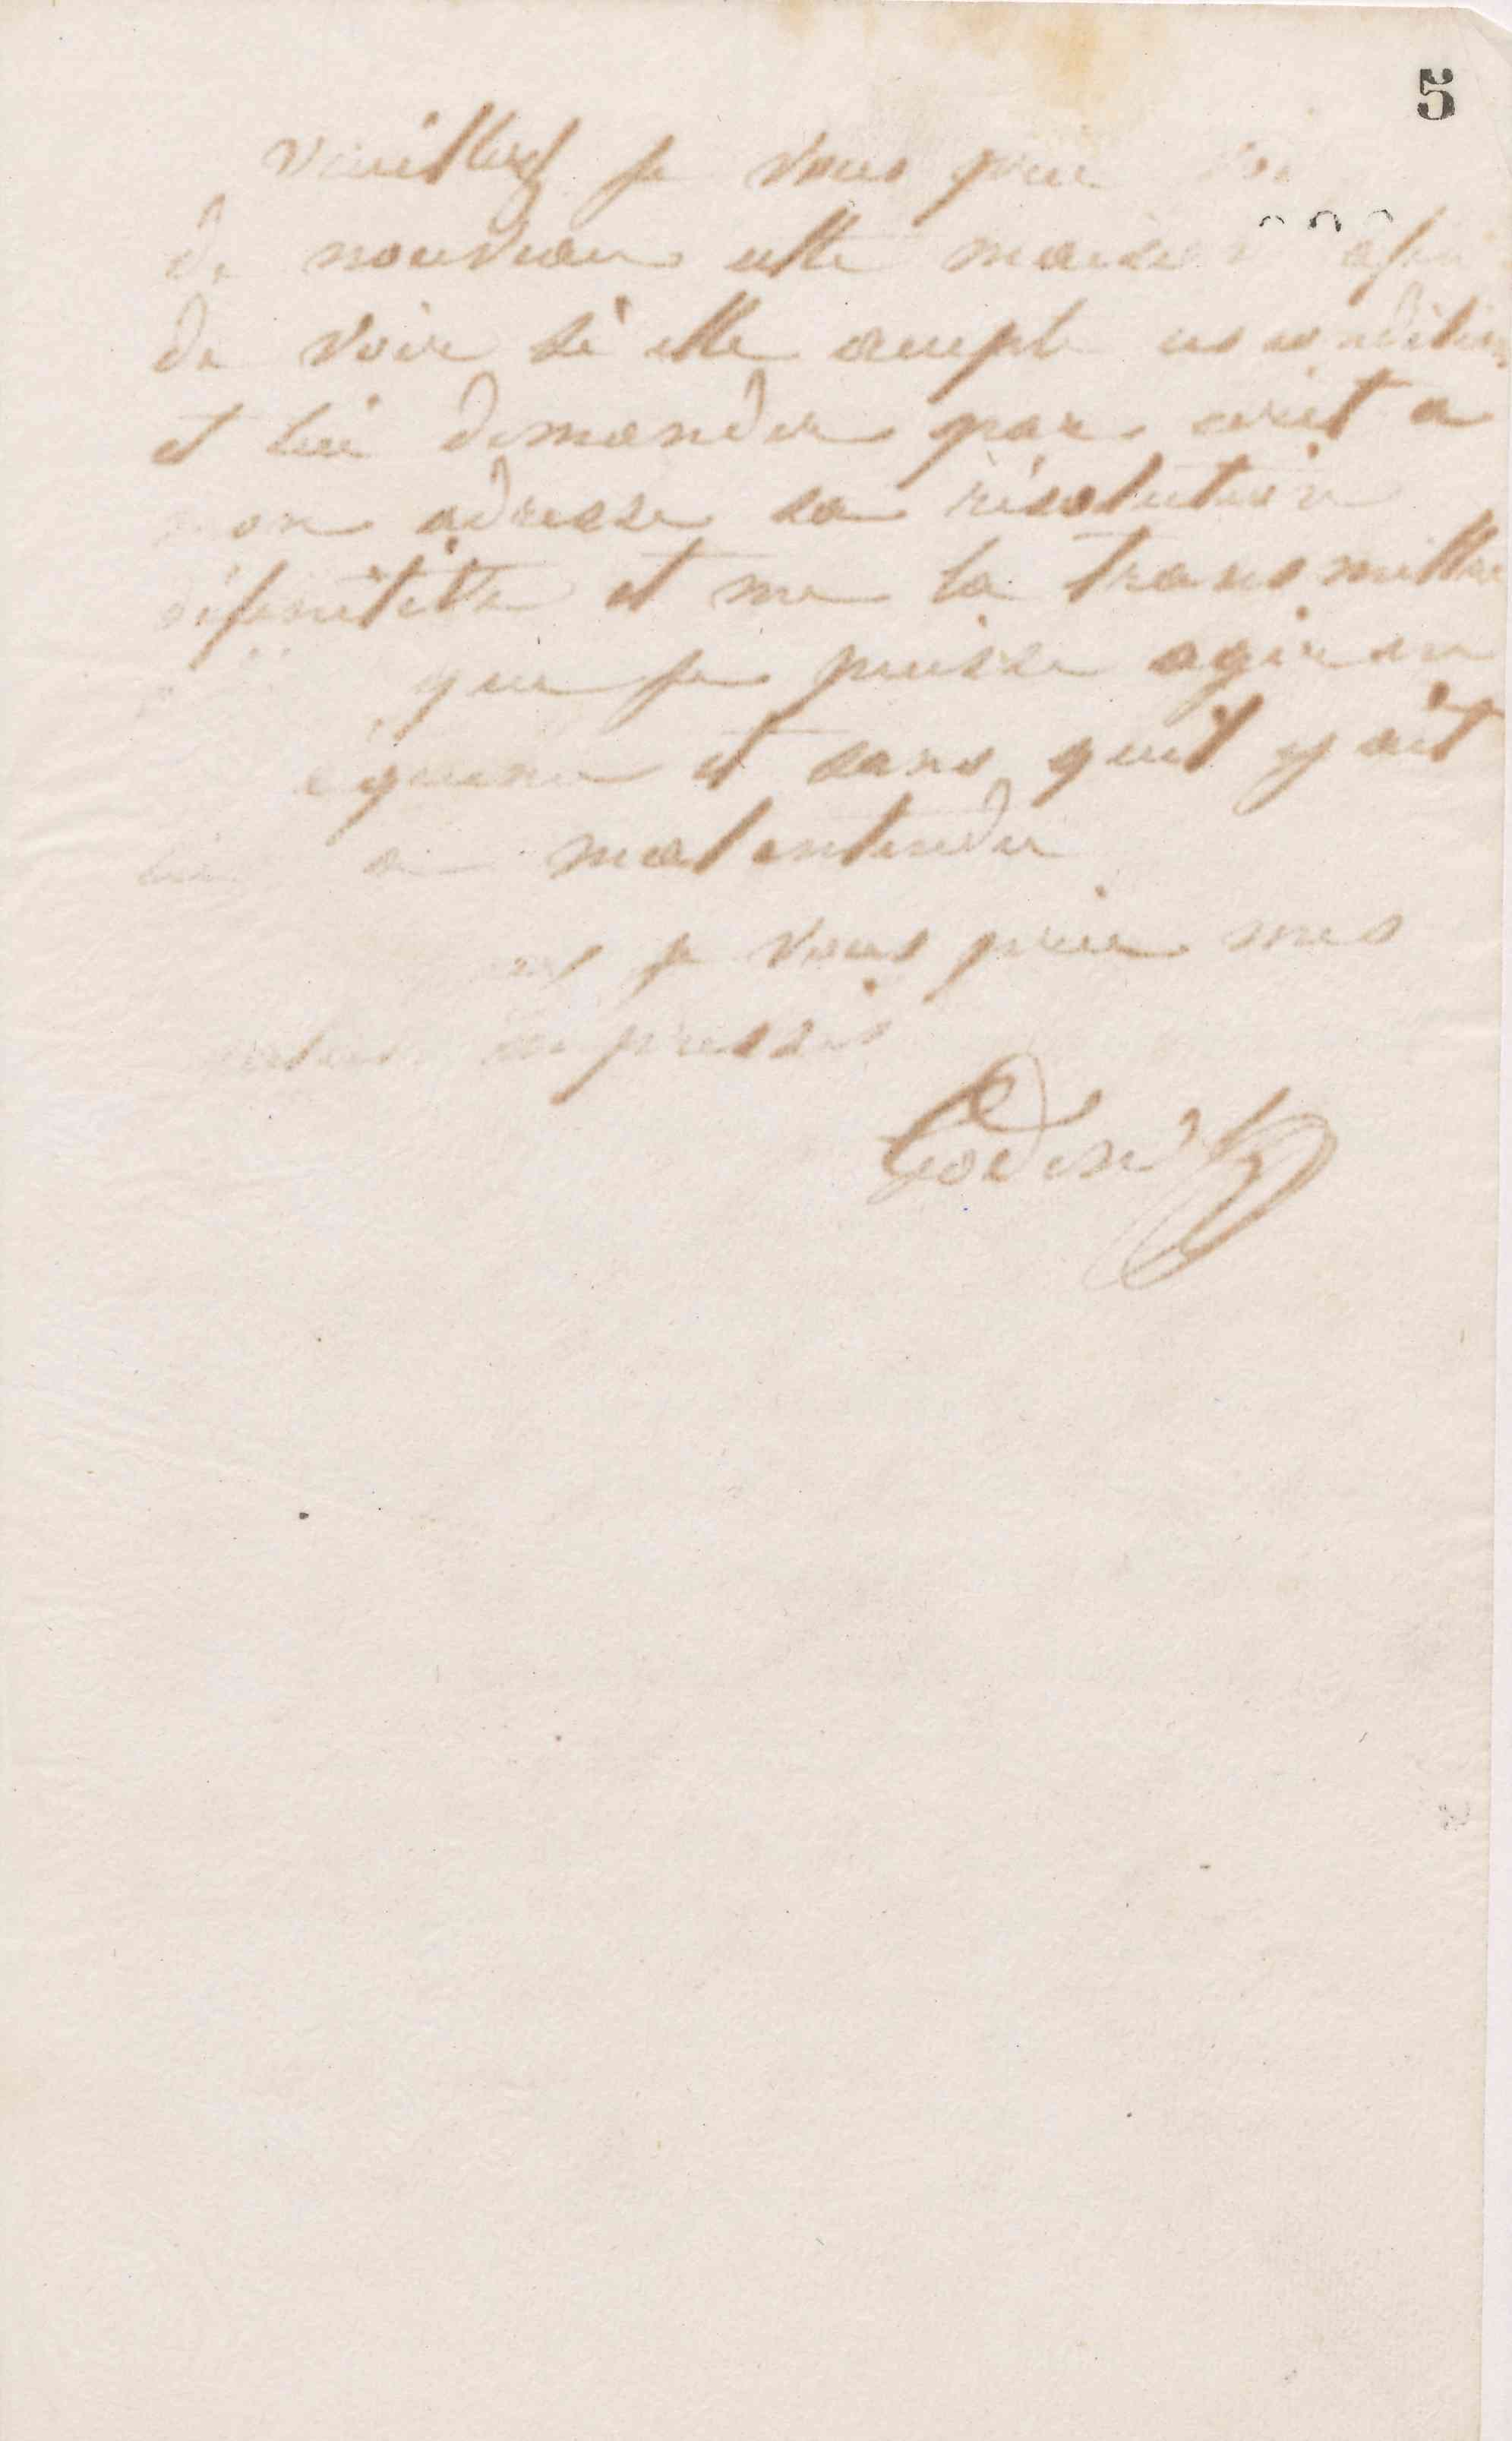 5
Veuillez je vous prie voir
de nouveau cette maison afin
de voir si elle accepte ces conditions
et lui demander par ecrit a
mon adresse sa résolution
définitive et me la transmettre
que je puisse agir en
équence et sans quil y ait
malentendu
je vous prie mes
empressés
Godin